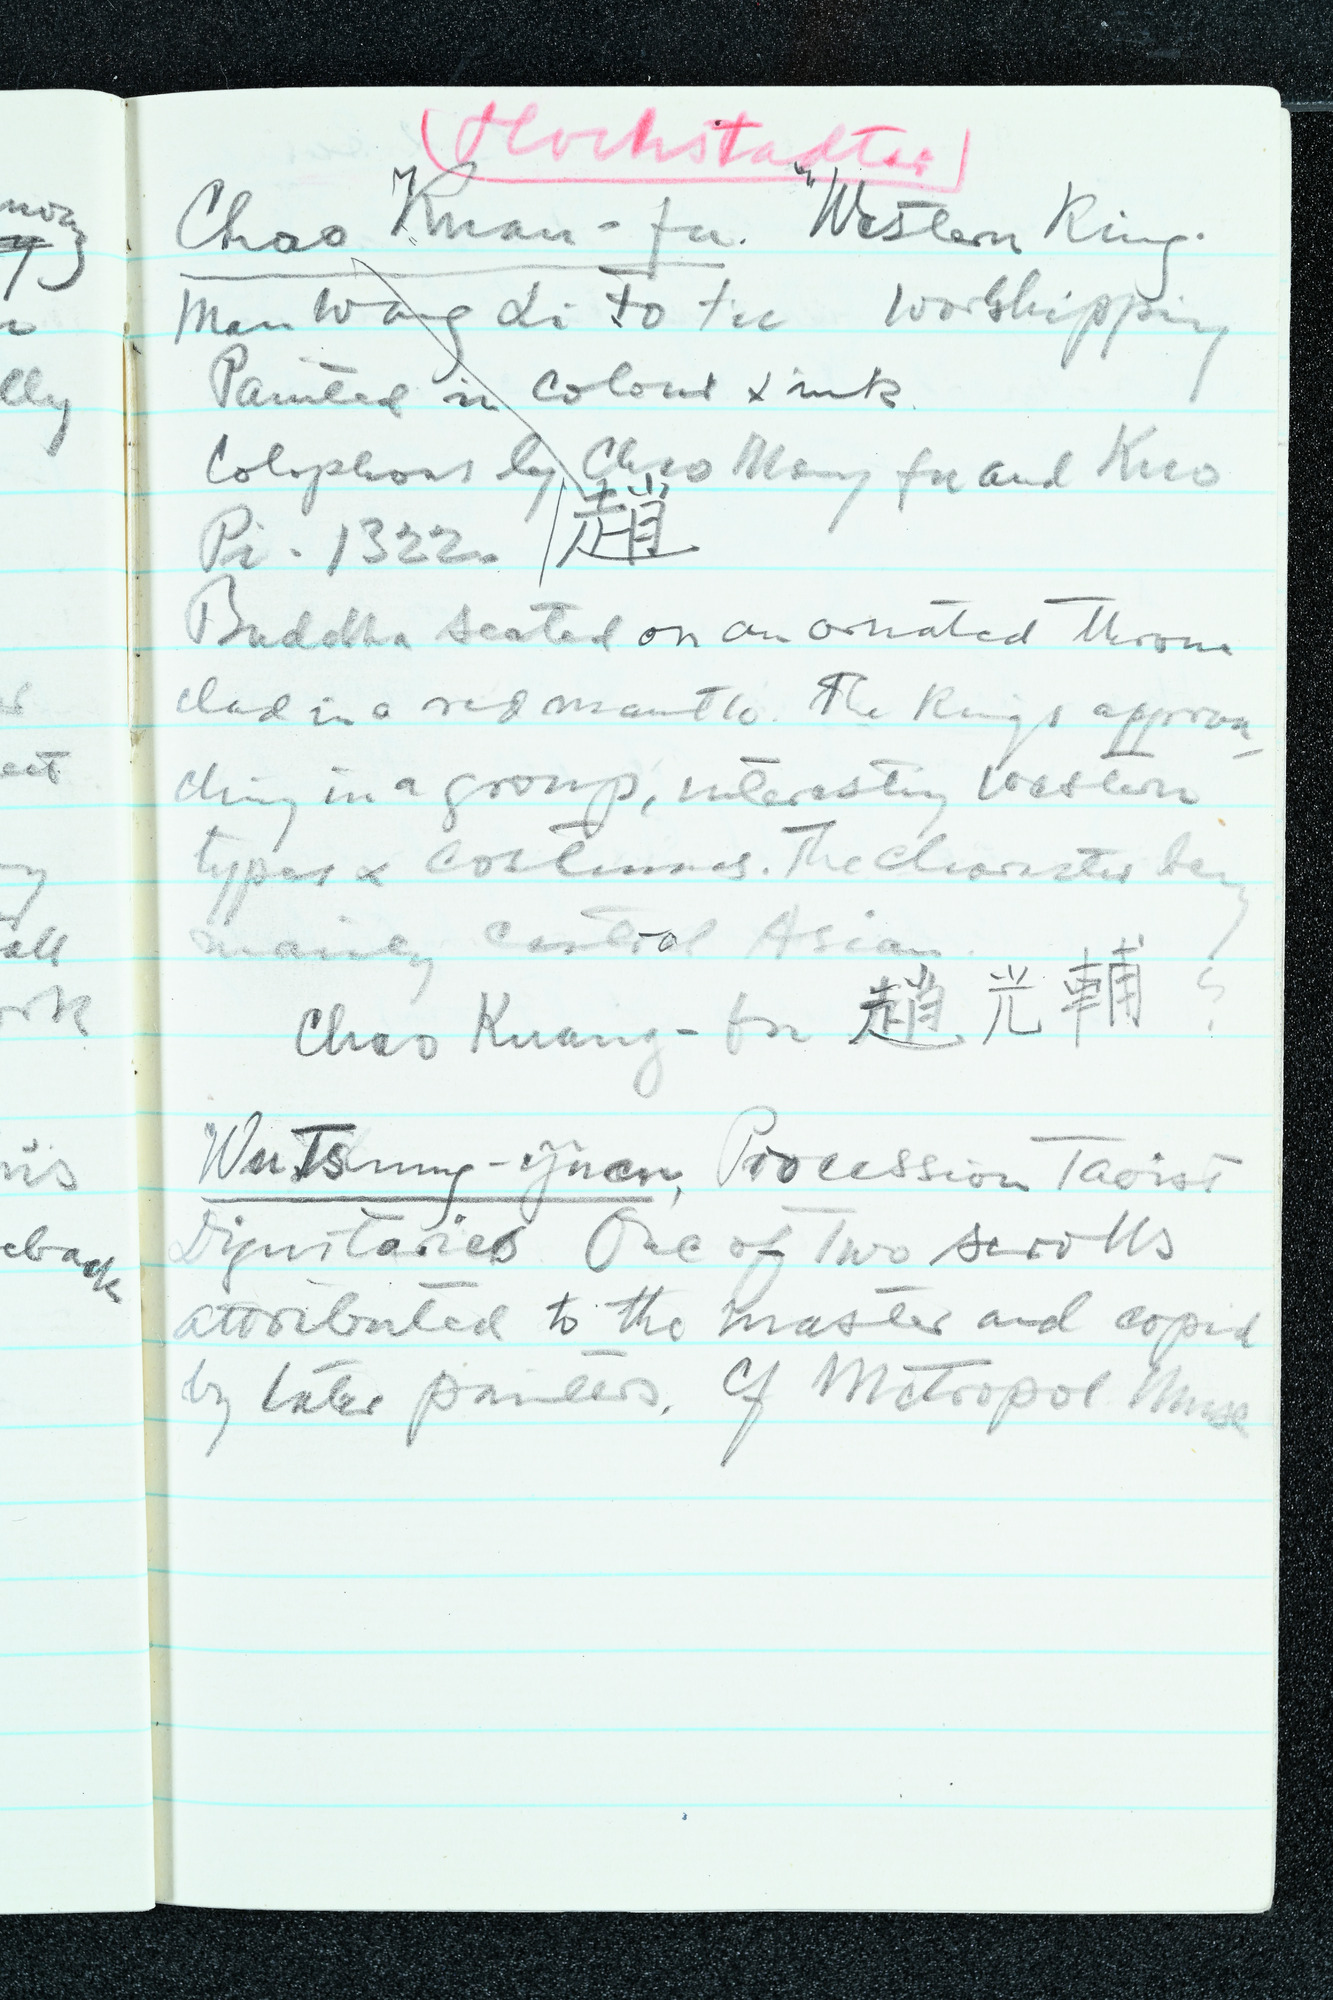 (Hochstadter)
Chao Kuan-fu. "Western King.
Man Wang Li Fo tu worshipping
Painted in colour & ink.
Colophons by Chao Meng fu and Kuo
Pi. 1322. 趙
Buddha seated on an ornated throne
clad in a red mantle. The Kings approa-
ching in a group, interesting western
types & costumes. The character being
mainly central Asian.
Chao Kuang-fu 趙光輔 ?
Wu Tsung-yüan, Procession Taoist
Dignitaries One of two scrolls
attributed to the master and copied
by later painters. Cf Metropol. Muse